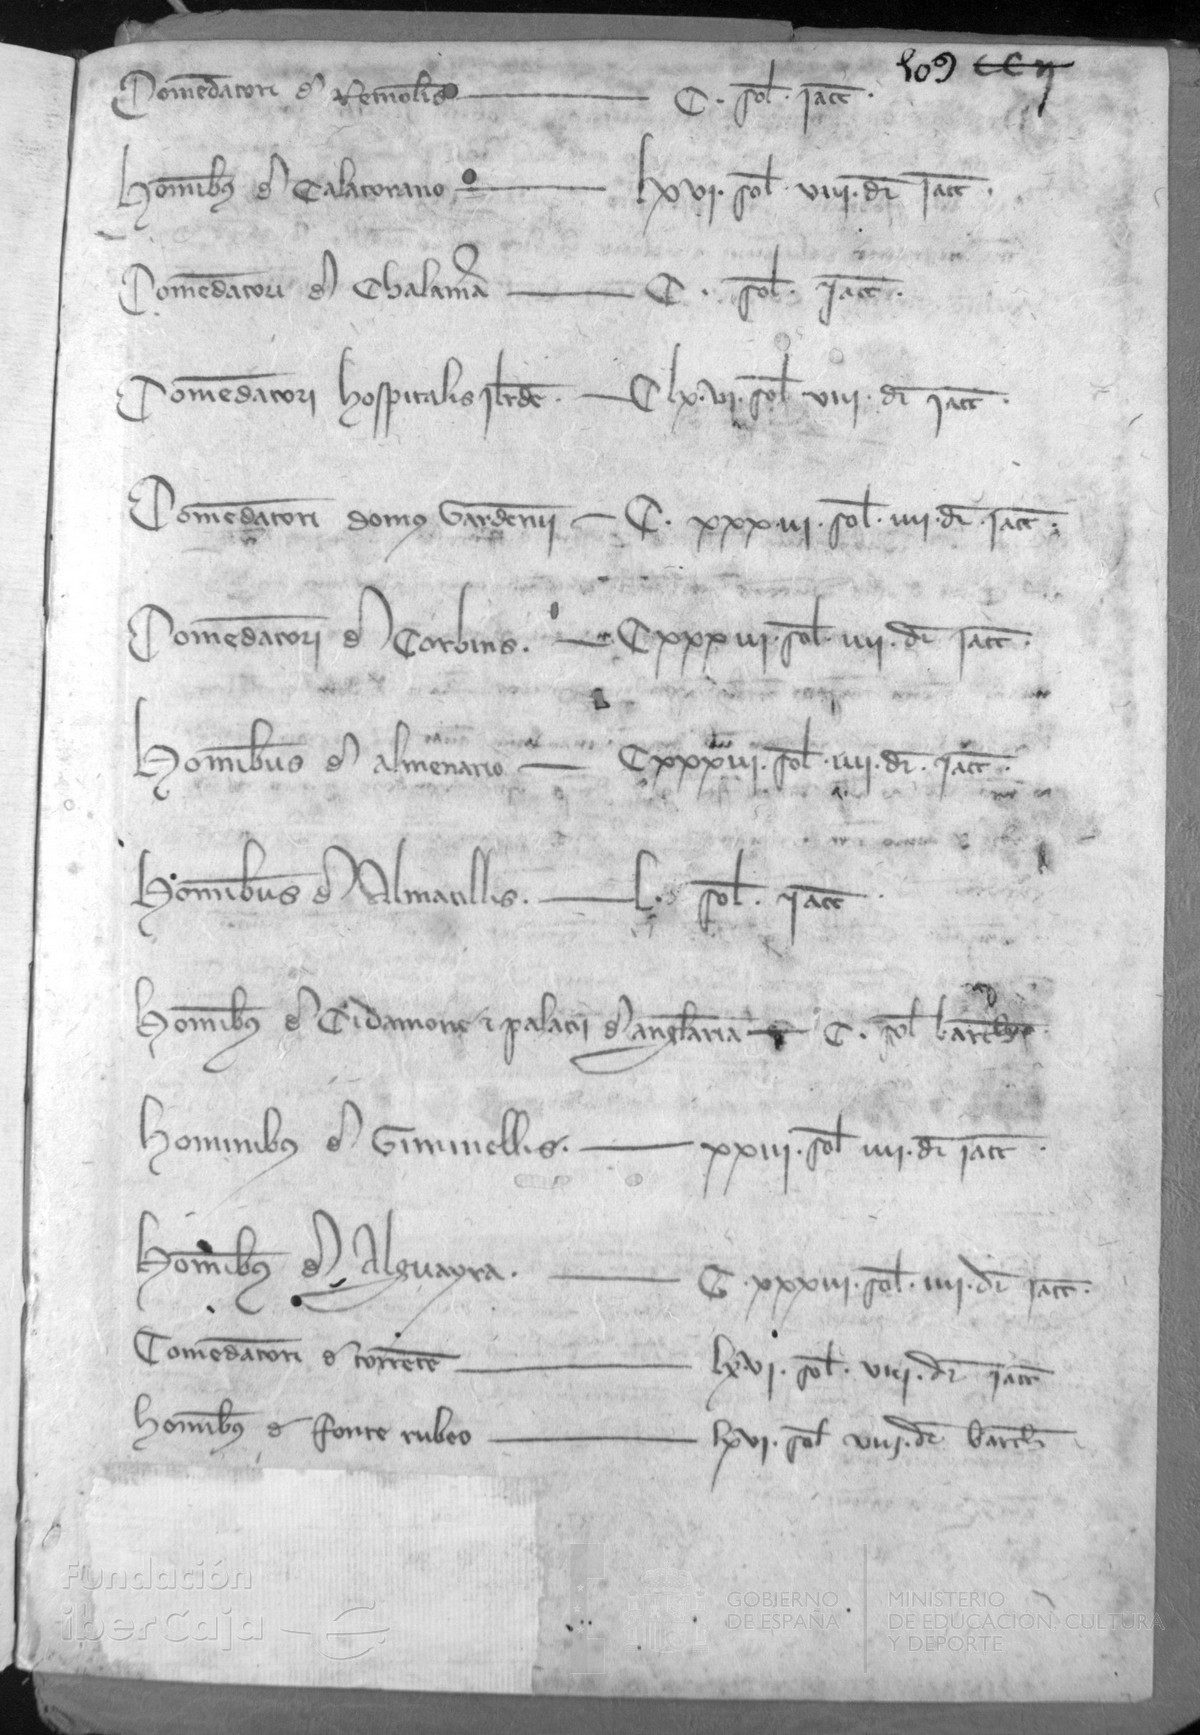 109 CCII
Comedatori d Remolis C. sol. iacc.
Homibus d Calatorrano lxvi. sol. viii. dr iacc.
Comedatori d Chalamera C. sol. iacc.
Comedatori hospitalis Ilrde. C lx.vi. sol viii. dr iacc.
Comedatori domus Gardenii C. xxx.iii. sol. iiii. dr. iacc.
Comedatori d Corbins. Cxxxiii. sol. iiii. dr iacc.
Homibus d almenario Cxxxiii. sol. iiii. dr. iacc.
Homibus d Almacellis. L. sol. iacc.
Homibus d Cidamont et palacii d anglaria C. sol barch
Hominibus d Gimmellis. xxiii. sol iiii. dr iacc.
Homibus d Alguayra. C. xxxiii. sol. iiii. dr iacc.
Comedatori d torrente lxvi. sol. viii. dr iacc
homibus d fonte rubeo lxvi. sol viii. dr barch
Fundación
iberCaja
GOBIERNO
DE ESPAÑA
MINISTERIO
DE EDUCACIÓN, CULTURA
Y DEPORTE